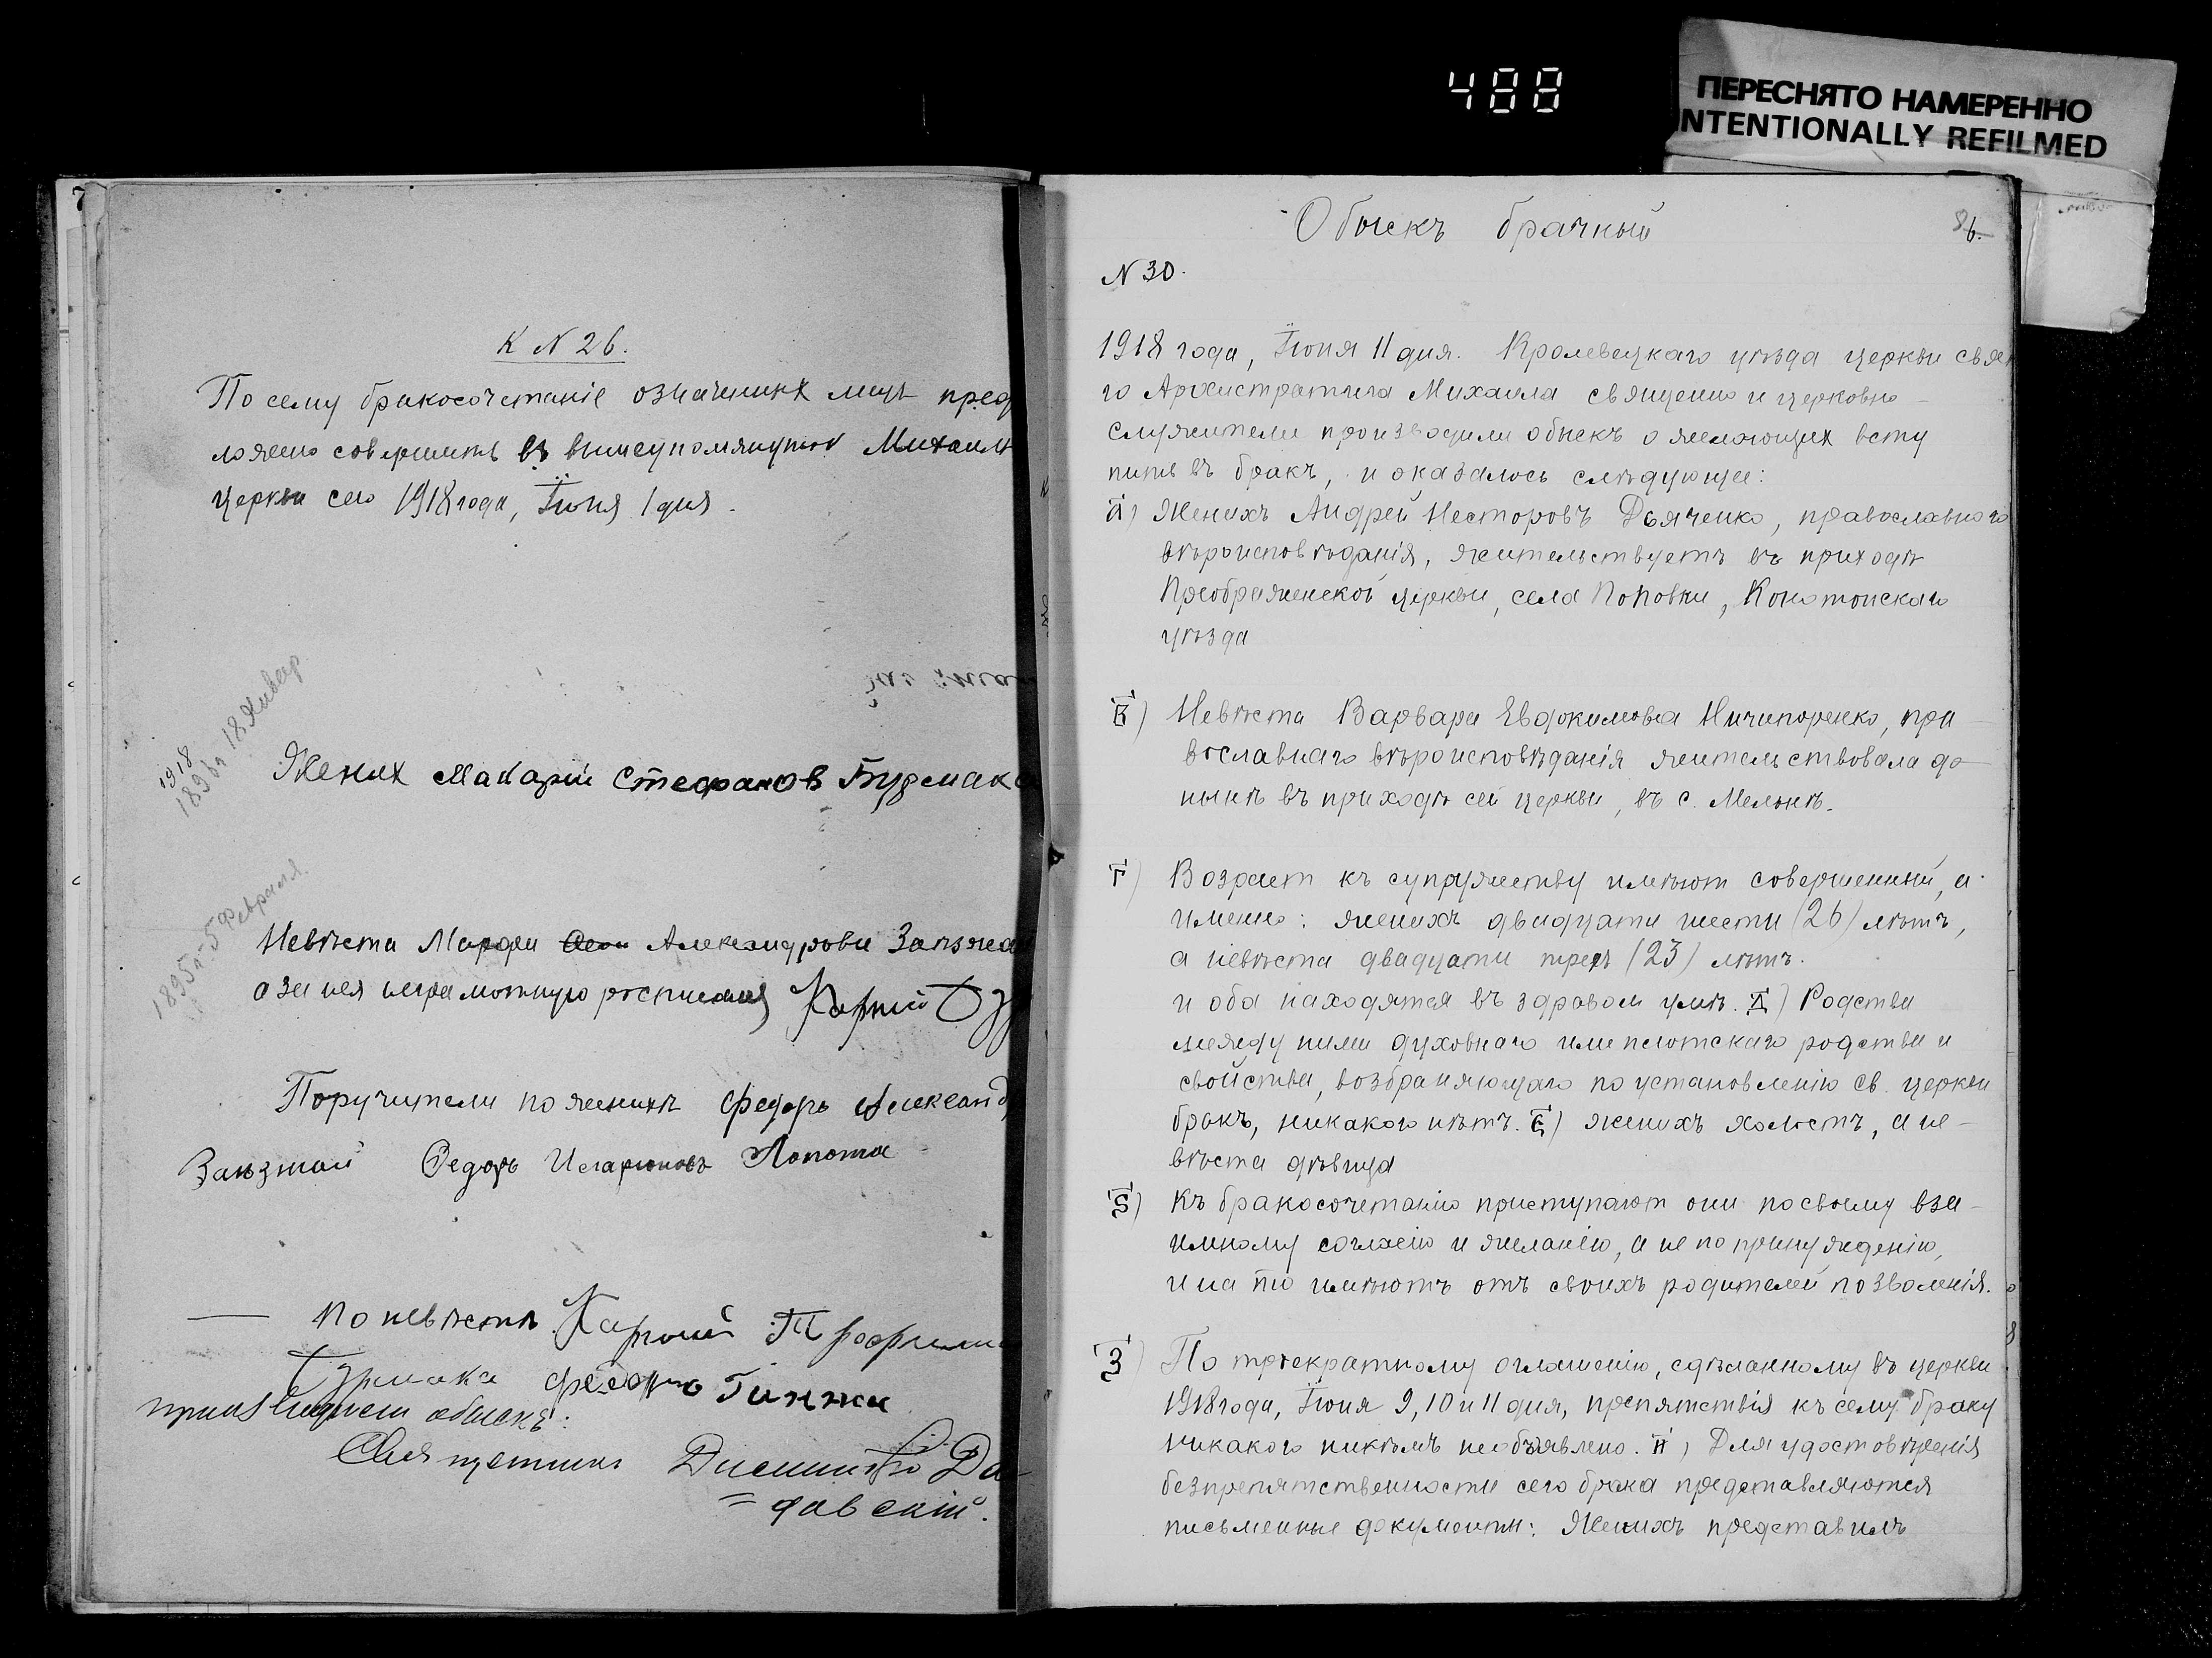 488
ПЕРЕСНЯТО НАМЕРЕННО
INTENTIONALLY REFILMED
7
К N 26.
По сему бракосочетаніе означенных лицъ пред
ложено совершить въ вышеупомянутой Михаил
церкви сего 1918 года, Іюня 1 дня.
1918
1896 г. 18 Январ
Жених Макарій Стефанов Бурмака
1895 г. 5 Февраля.
Невѣста Марфа Александрова Заѣзжа
а за нея неграмотную росписался Карпій
Поручители по женихѣ Федоръ Александ
Заѣзжай Федоръ Иларіоновъ Лопота
— По невѣстѣ Карпій Трофим
Бурмака Гинжа
производили обыскъ:
Священникъ Димитрій Да-
=довскій.
Обыскъ брачный
86.
N 30.
1918 года, Іюня 11 дня. Кролевецкаго уѣзда церкви свят
го Архистратига Михаила священно и церковно-
служители производили обыскъ о желающих всту
пить въ бракъ, и оказалось слѣдующее:
а) Женихъ Андрей Несторовъ Дьяченко, православного
вѣроисповѣданія, жительствуетъ въ приходѣ
Преображенской церкви, села Поповки, Конотопскаго
уѣзда
в) Невѣста Варвара Евдокимова Ничипоренко, пра-
вославнаго вѣроисповѣданія жительствовала до-
нынѣ въ приходѣ сей церкви, въ с. Мельнѣ.
г) Возраст къ супружеству имѣют совершенный, а
именно: женихъ двадцати шести (26) лѣтъ,
а невѣста двадцати трехъ (23) лѣтъ.
и оба находятся въ здравом умѣ. д) Родства
между ними духовнаго или плотскаго родства и
свойства, возбраняющаго по установленію св. церкви
бракъ, никакого нѣтъ. є) женихъ холостъ, а не-
вѣста дѣвица
ѕ) Къ бракосочетанію приступают они по своему вза-
имному согласію и желанію, а не по принужденію,
и на то имѣютъ отъ своихъ родителей позволенія.
з) По троекратному оглашенію, сдѣланному въ церкви
1918 года, Іюня 9, 10 и 11 дня, препятствія къ сему браку
никакого никѣмъ необъявлено. и) Для удостовѣренія
безпрепятственности сего брака представляются
письменные документы: Женихъ представилъ